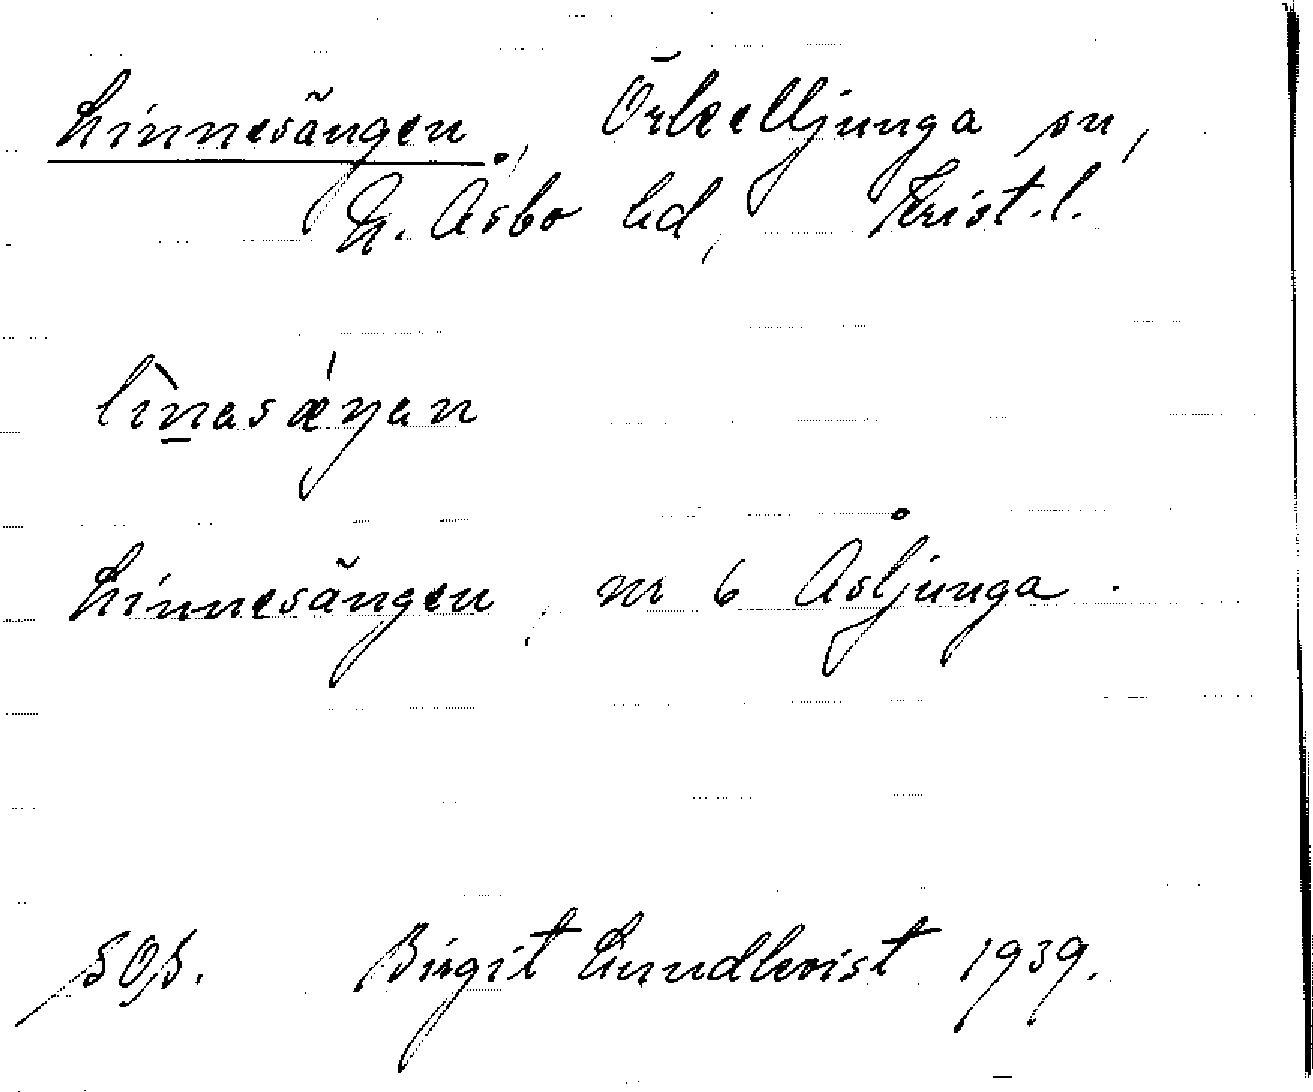 Linnesängen., Örkelljunga sn,
N. Åsbo hd, Krist. l.
lìnasǽŋan
Linnesängen, nr 6 Åsljunga.
SOs. Birgit Lundkvist 1939.